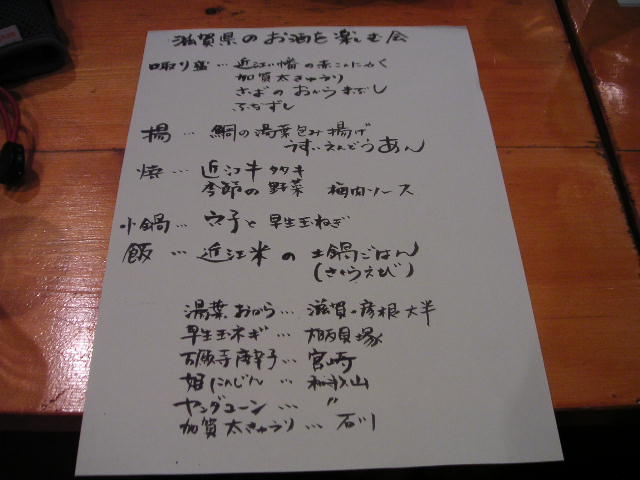 滋賀県のお酒を楽しむ会
口取り盛…近江八幡の赤こんにゃく
加賀太きゅうり
さばのおからまぶし
ふなずし
揚…鯛の湯葉包み揚げ
うすいえんどうあん
焼…近江牛タタキ
季節の野菜 梅肉ソース
小鍋…穴子と早生玉ねぎ
飯…近江米の土鍋ごはん
(さくらえび)
湯葉 おから…滋賀・彦根 大半
早生玉ネギ…大阪貝塚
万願寺唐辛子…宮崎
姫にんじん…和歌山
ヤングコーン…〃
加賀太きゅうり…石川